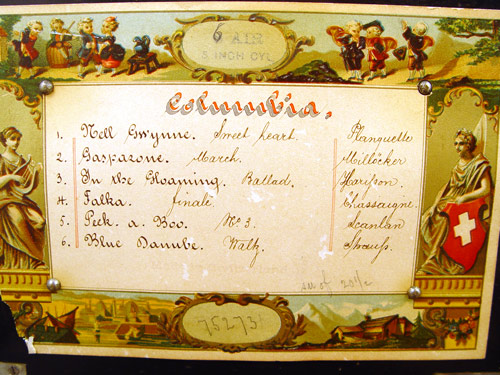 6 AIR
5 INCH CYL
Columbia.
1. Nell Gwynne. Sweet heart. Planquette
2. Gasparone. March. Millöcker
3. In the Gloaming. Ballad. Harrison
4. Falka. finale. Chassaigne.
5. Peek. a. Boo. No 3. Scanlan
6. Blue Danube. Waltz. Strauss.
75273